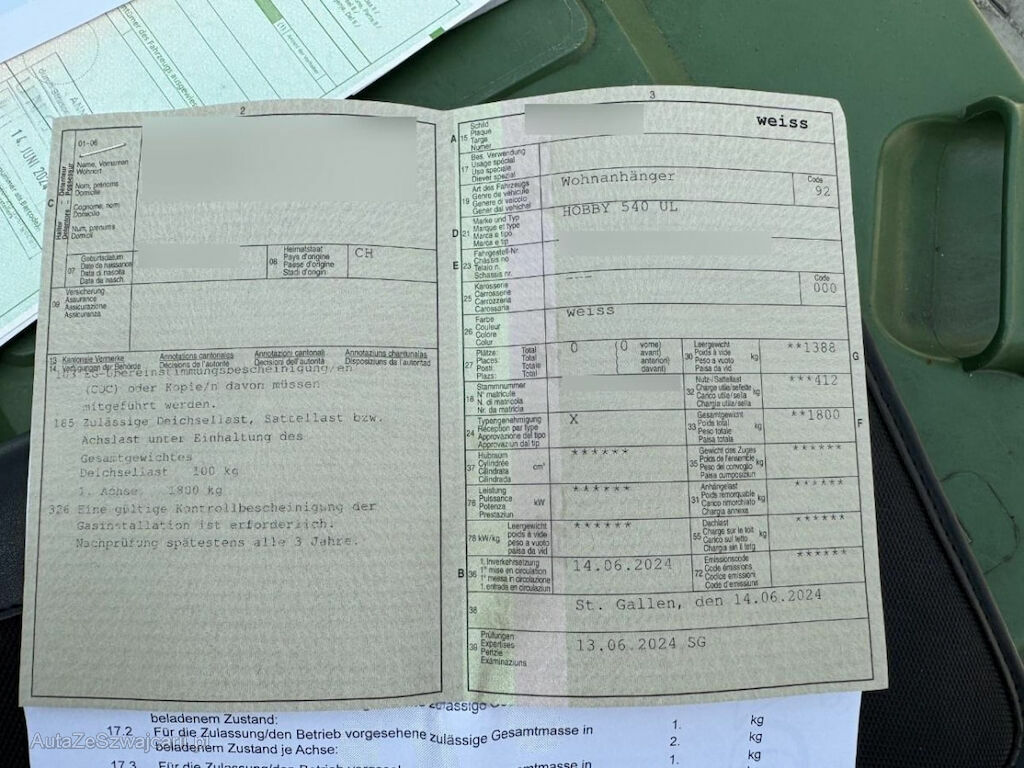 14. JUNI 2024
2
01-06
C
Name, Vornamen
Wohnort
Nom, prénoms
Domicile
Cognome, nomi
Domicilio
Num, prenums
Domicil
07
Geburtsdatum
Date de naissance
Data di nascita
Data da nasch.
08
Heimatstaat
Pays d'origine
Paese d'origine
Stadi d'origin
CH
09
Versicherung
Assurance
Assicurazione
Assicuranza
13
14
Kantonale Vermerke
Verfügungen der Behörde
Annotations cantonales
Décisions de l'autorité
Annotazioni cantonali
Decisioni dell'autorità
Annotaziuns chantunalas
Disposiziuns da l'autoritad
(COC) oder Kopie/n davon müssen
mitgeführt werden.
185 Zulässige Deichsellast, Sattellast bzw.
Achslast unter Einhaltung des
Gesamtgewichtes
Deichsellast 100 kg
1. Achse 1800 kg
326 Eine gültige Kontrollbescheinigung der
Gasinstallation ist erforderlich.
Nachprüfung spätestens alle 3 Jahre.
3
A
15
Schild
Plaque
Targa
Numer
weiss
17
Bes. Verwendung
Usage spécial
Uso speciale
Diever spezial
19
Art des Fahrzeugs
Genre de véhicule
Genere di veicolo
Gener dal vehichel
Wohnanhänger
Code
92
D
21
Marke und Typ
Marque et type
Marca e tipo
Marca e tip
HOBBY 540 UL
E
23
Fahrgestell-Nr.
Châssis no
Telaio n.
Schassis nr.
25
Karosserie
Carrosserie
Carrozzeria
Carossaria
---
Code
000
26
Farbe
Couleur
Colore
Colur
weiss
27
Plätze:
Places:
Posti:
Plazs:
Total
Total
Totale
Total
0
(0
vorne)
avant)
anteriori)
davant)
30
Leergewicht
Poids à vide
Peso a vuoto
Paisa da vid
kg
**1388
G
18
Stammnummer
N° matricule
N. di matricola
Nr. da matricla
32
Nutz-/Sattellast
Charge utile/sellette
Carico utile/sella
Chargia utila/sella
kg
***412
24
Typengenehmigung
Réception par type
Approvazione del tipo
Approvaziun dal tip
X
33
Gesamtgewicht
Poids total
Peso totale
Paisa totala
kg
**1800
F
37
Hubraum
Cylindrée
Cilindrata
Cilindrada
cm³
******
35
Gewicht des Zuges
Poids de l'ensemble
Peso del convoglio
Paisa cumposiziun
kg
******
76
Leistung
Puissance
Potenza
Prestaziun
kW
******
31
Anhängelast
Poids remorquable
Carico rimorchiato
Chargia annexa
kg
******
78 kW/kg
Leergewicht
poids à vide
peso a vuoto
paisa da vid
******
55
Dachlast
Charge sur le toit
Carico sul tetto
Chargia sin il tetg
kg
******
B
36
1. Inverkehrsetzung
1re mise en circulation
1a messa in circolazione
1. entrada en circulaziun
14.06.2024
72
Emissionscode
Code émissions
Codice emissioni
Code d'emissiuns
******
38
St. Gallen, den 14.06.2024
39
Prüfungen
Expertises
Perizie
Examinaziuns
13.06.2024 SG
beladenem Zustand:
kg
17.2 Für die Zulassung/den Betrieb vorgesehene zulässige Gesamtmasse in
1.
kg
beladenem Zustand je Achse:
2.
kg
17.3
1.
kg